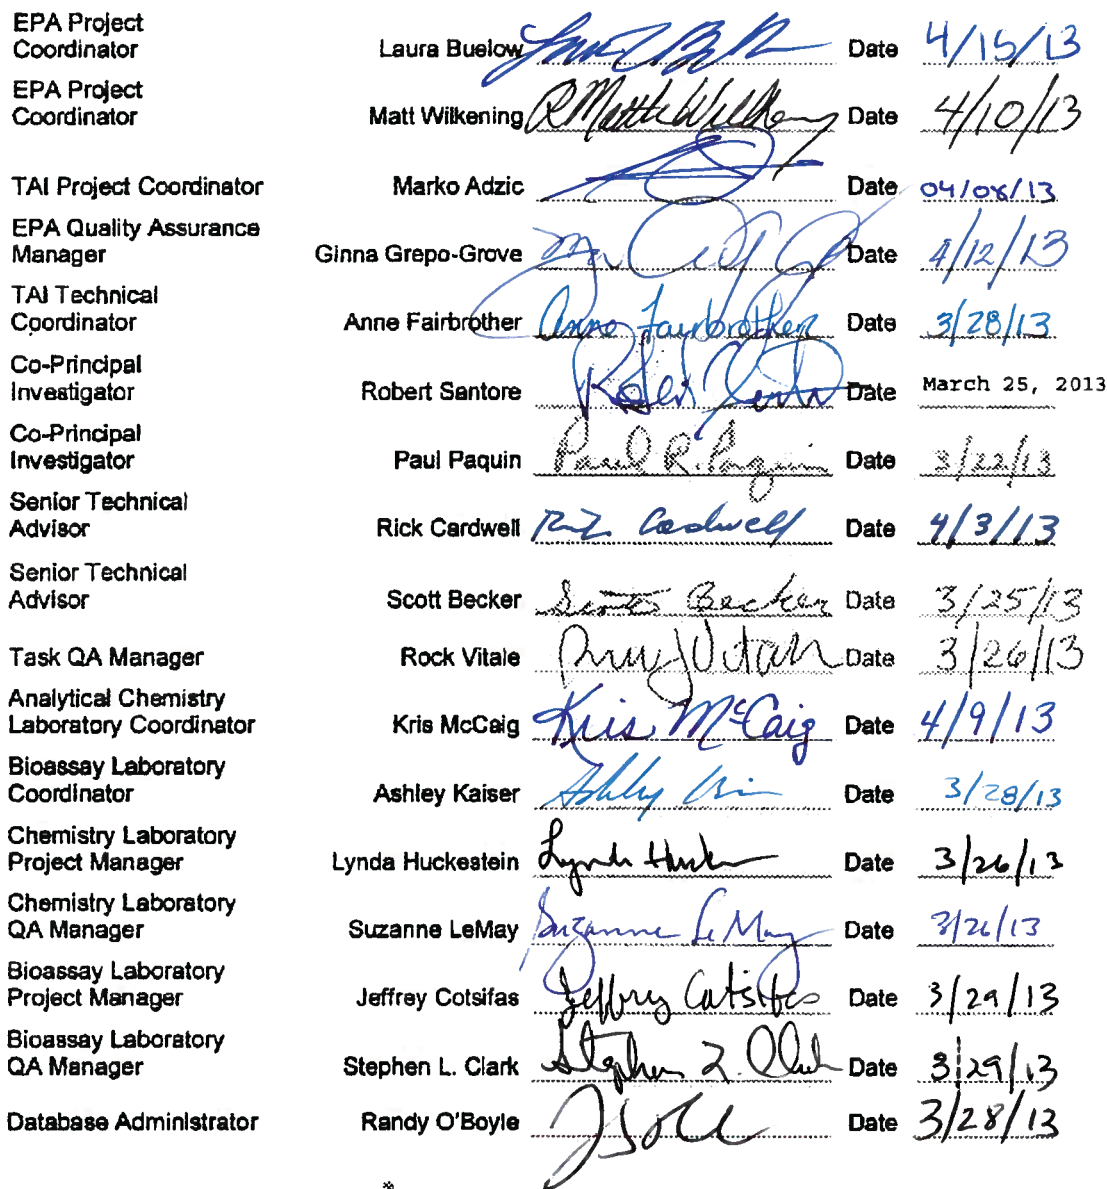 EPA Project
Coordinator Laura Buelow Date 4/15/13
EPA Project
Coordinator Matt Wilkening R Matthew Wilkening Date 4/10/13
TAI Project Coordinator Marko Adzic Date 04/08/13
EPA Quality Assurance
Manager Ginna Grepo-Grove Date 4/12/13
TAI Technical
Coordinator Anne Fairbrother Anne Fairbrother Date 3/28/13
Co-Principal
Investigator Robert Santore Date March 25, 2013
Co-Principal
Investigator Paul Paquin Paul R. Paquin Date 3/22/13
Senior Technical
Advisor Rick Cardwell Rick Cardwell Date 4/3/13
Senior Technical
Advisor Scott Becker Scott Becker Date 3/25/13
Task QA Manager Rock Vitale Date 3/26/13
Analytical Chemistry
Laboratory Coordinator Kris McCaig Kris McCaig Date 4/9/13
Bioassay Laboratory
Coordinator Ashley Kaiser Ashley Date 3/28/13
Chemistry Laboratory
Project Manager Lynda Huckestein Lynda Date 3/26/13
Chemistry Laboratory
QA Manager Suzanne LeMay Suzanne LeMay Date 3/26/13
Bioassay Laboratory
Project Manager Jeffrey Cotsifas Jeffrey Cotsifas Date 3/29/13
Bioassay Laboratory
QA Manager Stephen L. Clark Stephen L. Clark Date 3/29/13
Database Administrator Randy O'Boyle Date 3/28/13